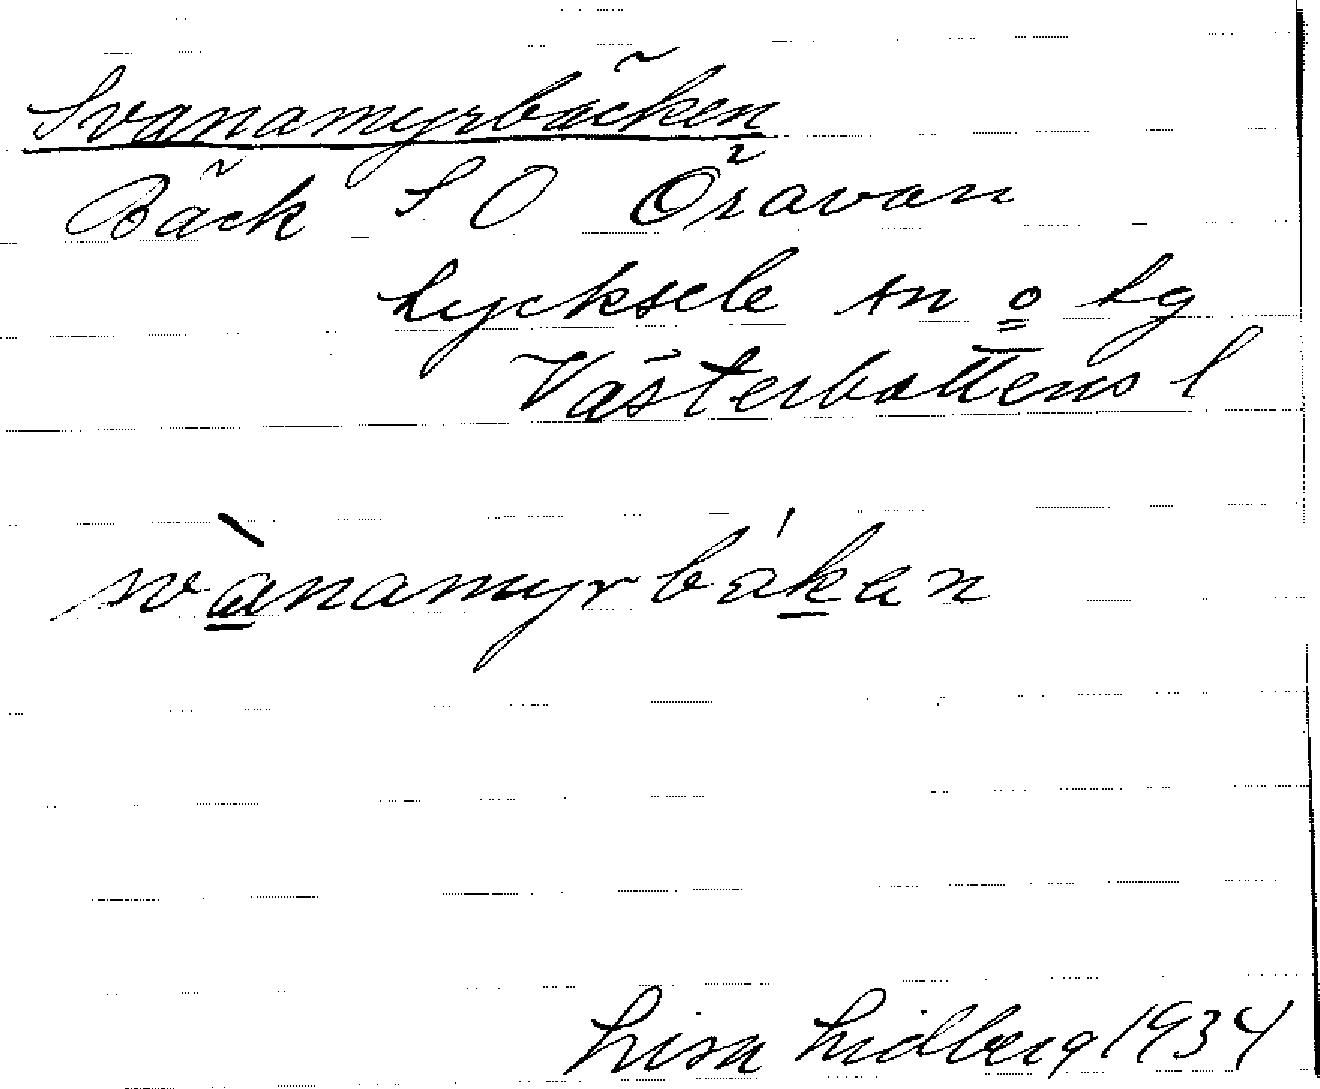 Svanamyrbäcken
Bäck S O Öravan
Lycksele sn o lg
Västerbottens l
svànamyrbákan
Lisa Lidberg 1934